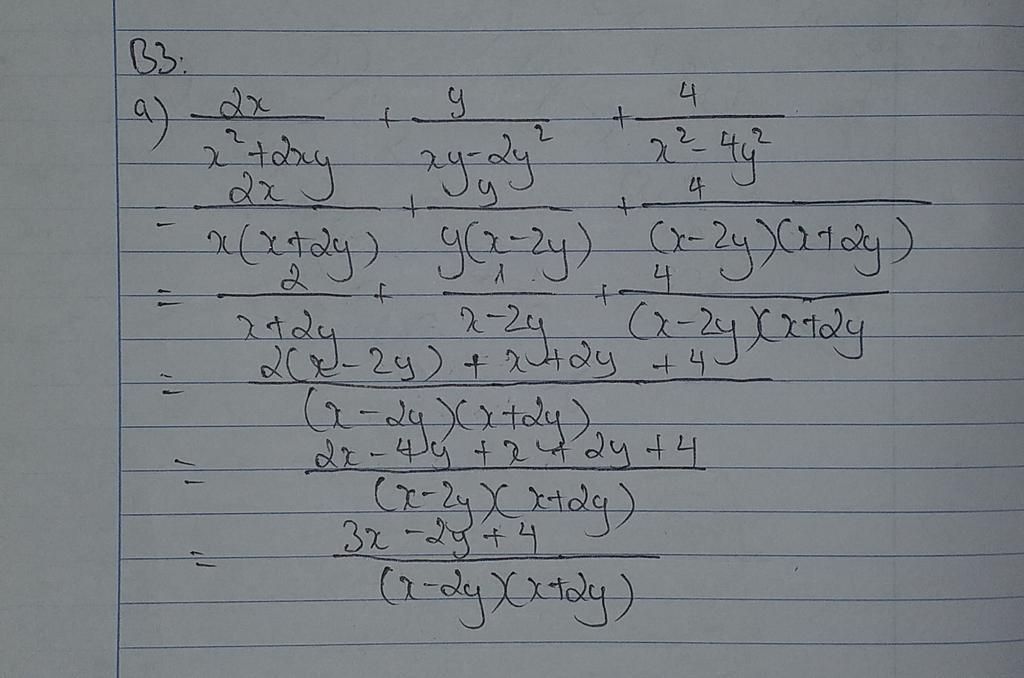 B3:
a) 2x/(x²+2xy) + y/(xy-2y²) + 4/(x²-4y²)
= 2x/(x(x+2y)) + y/(y(x-2y)) + 4/((x-2y)(x+2y))
= 2/(x+2y) + 1/(x-2y) + 4/((x-2y)(x+2y
= (2(x-2y) + x+2y + 4)/((x-2y)(x+2y))
= (2x-4y+x+2y+4)/((x-2y)(x+2y))
= (3x-2y+4)/((x-2y)(x+2y))